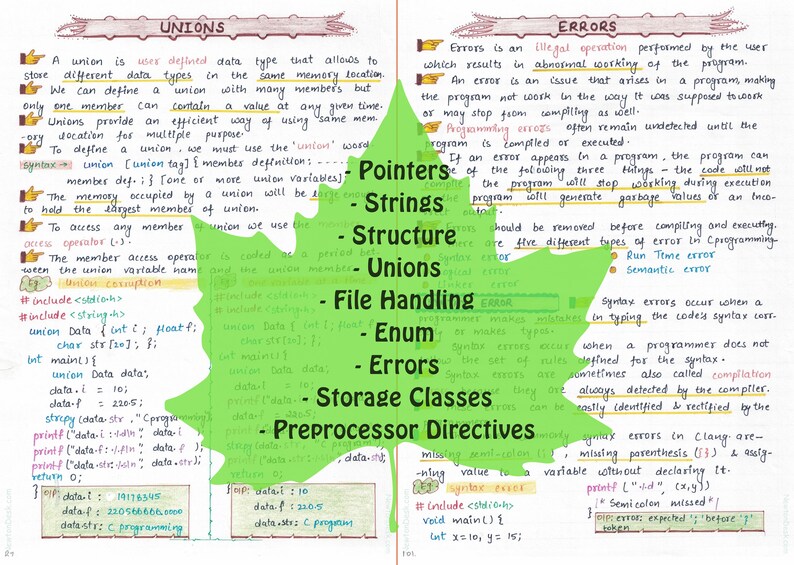 UNIONS
A union is user defined data type that allows to
store different data types in the same memory location.
We can define a union with many members but
only one member can contain a value at any given time.
Unions provide an efficient way of using same mem-
-ory location for multiple purpose.
To define a union, we must use the 'union' word
syntax → union [union tag] { member definition;
member def.; } [one or more union variables]
The memory occupied by a union will be large enough
to hold the largest member of union.
To access any member of union we use the
access operator (.).
The member access operator is coded as a period bet-
ween the union variable name and the union member
Eg Union corruption
#include <stdio.h>
#include <string.h>
union Data { int i; float f;
char str[20]; };
int main() {
union Data data;
data.i = 10;
data.f = 220.5;
strcpy (data.str, "C programming
printf ("data.i: %d\n", data.i
printf ("data.f: %f\n", data.f
printf ("data.str: %s\n", data.str)
return 0;
}
O|P: data.i: 19178345
data.f: 2205666660000
data.str: C programming
one variable at a time
#include <stdio.h>
#include <string.h>
union Data { int i; float f;
char str[20]; };
int main() {
union Data data;
data.i = 10;
data.f = 220.5;
return 0;
}
O|P: data.i: 10
data.f: 220.5
data.str: C program
87
- Pointers
- Strings
- Structure
- Unions
- File Handling
- Enum
- Errors
- Storage Classes
- Preprocessor Directives
ERRORS
Errors is an illegal operation performed by the user
which results in abnormal working of the program.
An error is an issue that arises in a program, making
the program not work in the way it was supposed to work
or may stop from compiling as well.
Programming errors often remain undetected until the
program is compiled or executed.
If an error appears in a program, the program can
one of the following three things - the code will not
compile, the program will stop working during execution
the program will generate garbage values or an inco-
output.
Errors should be removed before compiling and executing.
There are five different types of error in C programming-
Syntax error
Run Time error
Logical error
Semantic error
Linker error
ERROR
Syntax errors occur when a
programmer makes mistakes in typing the code's syntax cor-
or makes typos.
syntax errors occur when a programmer does not
the set of rules defined for the syntax.
Syntax errors are sometimes also called compilation
because they are always detected by the compiler.
These errors can be easily identified & rectified by the
commonly syntax errors in C lang are-
missing semi-colon (;), missing parenthesis ({}) & assig-
ning value to a variable without declaring it.
Eg syntax error
#include <stdio.h>
void main() {
int x=10, y=15;
printf ("%d", (x,y))
/* Semicolon missed */
}
O|P: error: expected ';' before '}'
token
101.